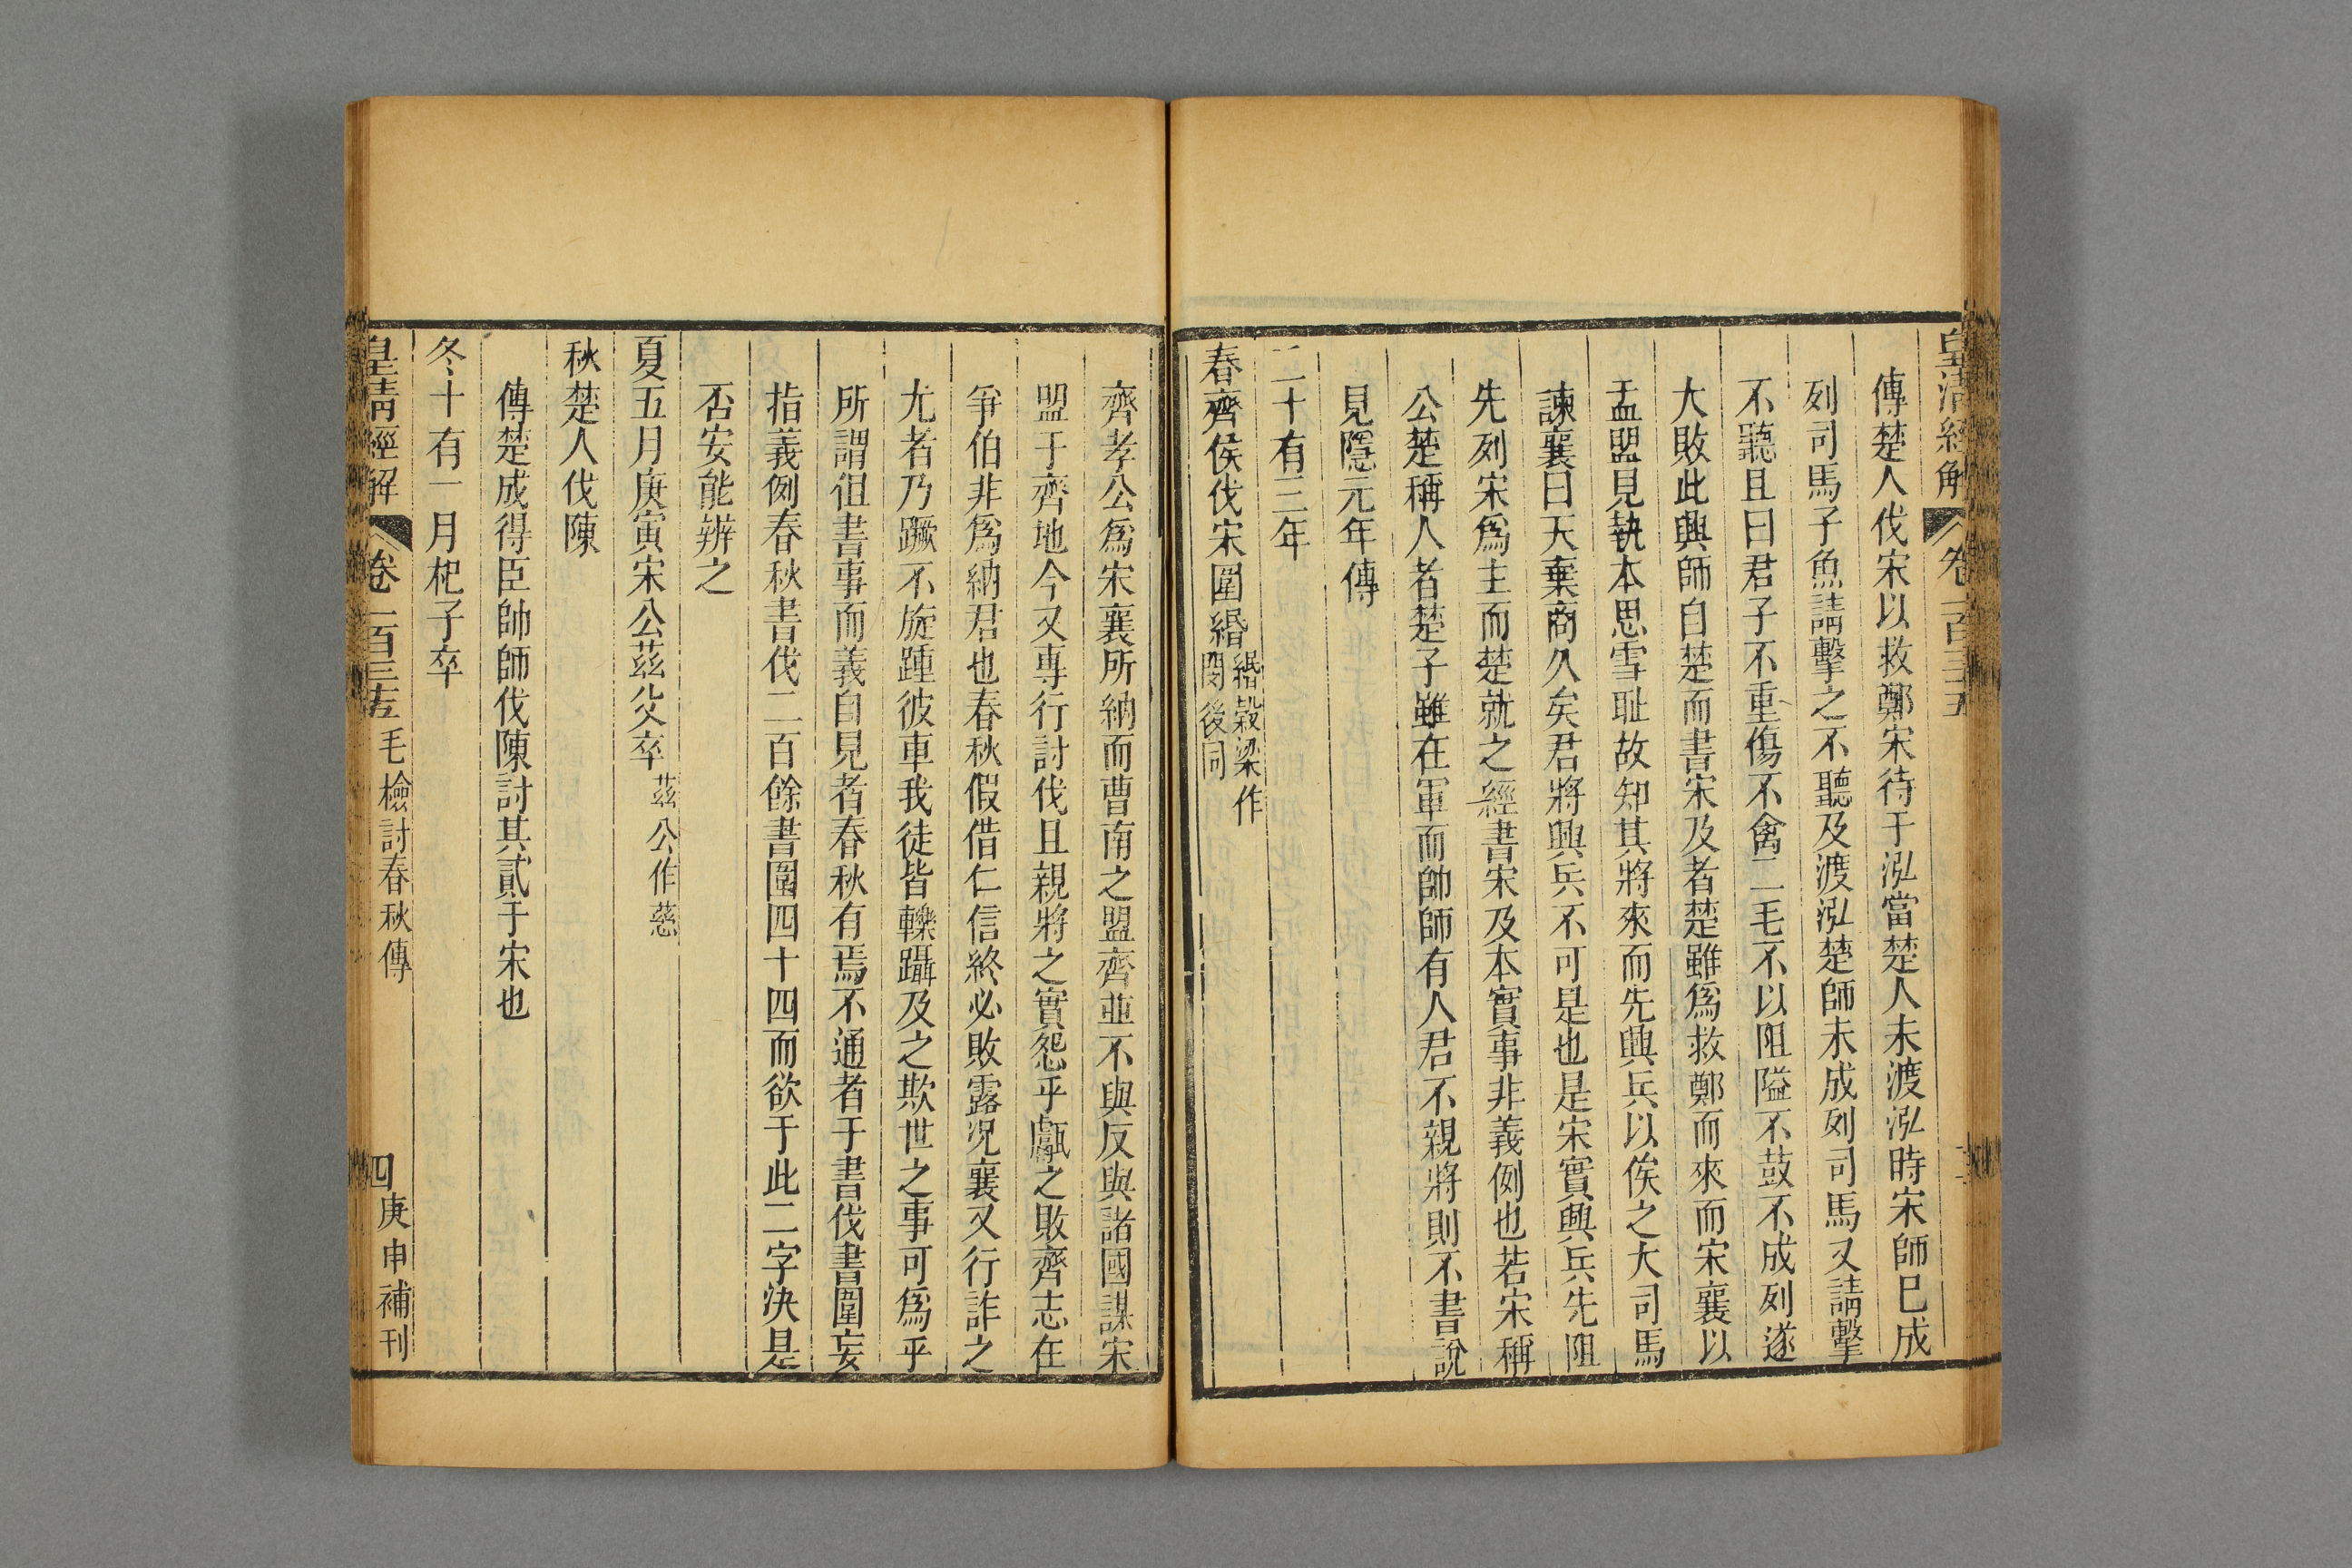 皇清經解 卷一百三五
傳楚人伐宋以救鄭宋待于泓當楚人未渡泓時宋師巳成
列司馬子魚請擊之不聽及渡泓楚師未成列司馬又請擊
不聽且曰君子不重傷不禽二毛不以阻隘不鼓不成列遂
大敗此與師自楚而書宋及者楚雖爲救鄭而來而宋襄以
盂盟見執本思雪耻故知其將來而先興兵以俟之大司馬
諫襄曰天棄商久矣君將興兵不可是也是宋實興兵先阻
先列宋爲主而楚就之經書宋及本實事非義例也若宋稱
公楚稱人者楚子雖在軍而帥師有人君不親將則不書說
見隱元年傳
二十有三年
春齊侯伐宋圍緡緡穀梁作閔後同
齊孝公爲宋襄所納而曹南之盟齊並不與反與諸國謀宋
盟于齊地今又專行討伐且親將之實怨乎甗之敗齊志在
爭伯非爲納君也春秋假借仁信終必敗露況襄又行詐之
尤者乃蹶不旋踵彼車我徒皆轢躡及之欺世之事可爲乎
所謂徂書事而義自見者春秋有焉不通者于書伐書圍妄
指義例春秋書伐二百餘書圍四十四而欲于此二字決是
否安能辨之
夏五月庚寅宋公茲父卒茲公作慈
秋楚人伐陳
傳楚成得臣帥師伐陳討其貳于宋也
冬十有一月杞子卒
皇清經解 卷一百三五 毛檢討春秋傳 四 庚申補刊